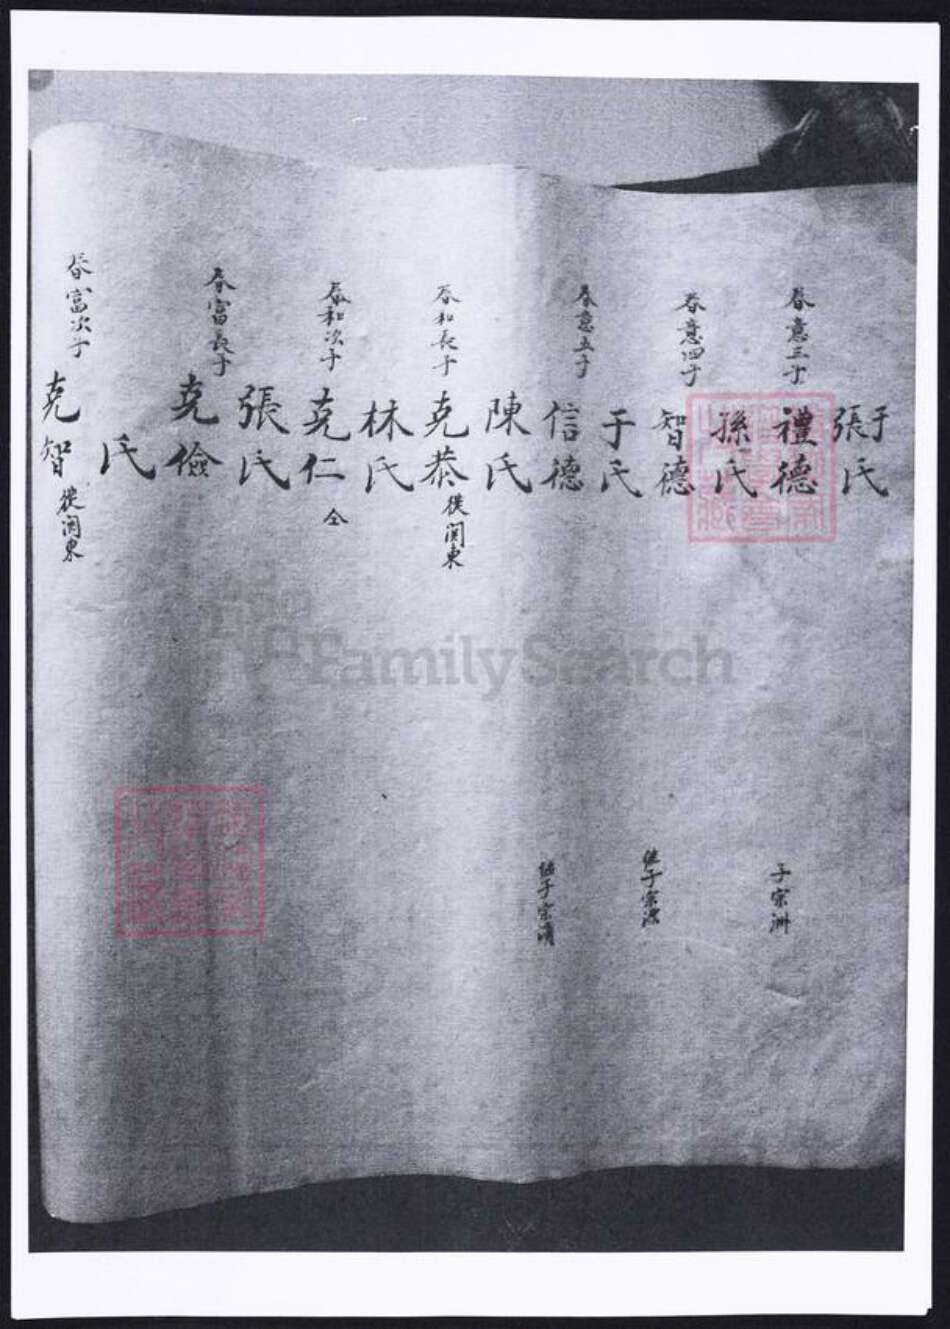 張于氏
春意三子
禮德
子宗洲
孫氏
春意四子
智德
继子宗深
于氏
春意五子
信德
继子宗清
陳氏
春和長子
克恭
後関東
林氏
春和次子
克仁
仝
張氏
春富長子
克儉
氏
春富次子
克智
後関東
FamilySearch